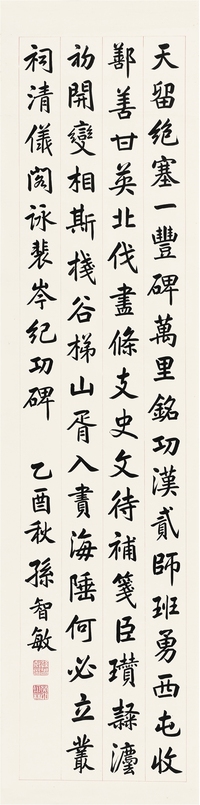 天留絶塞一豐碑萬里銘功漢貳師班勇西屯收
鄯善甘英北伐盡條支史文待補箋臣瓚隸灋
初開變相斯棧谷梯山胥入賮海陲何必立叢
祠清儀閣詠裴岑紀功碑
乙酉秋孫智敏